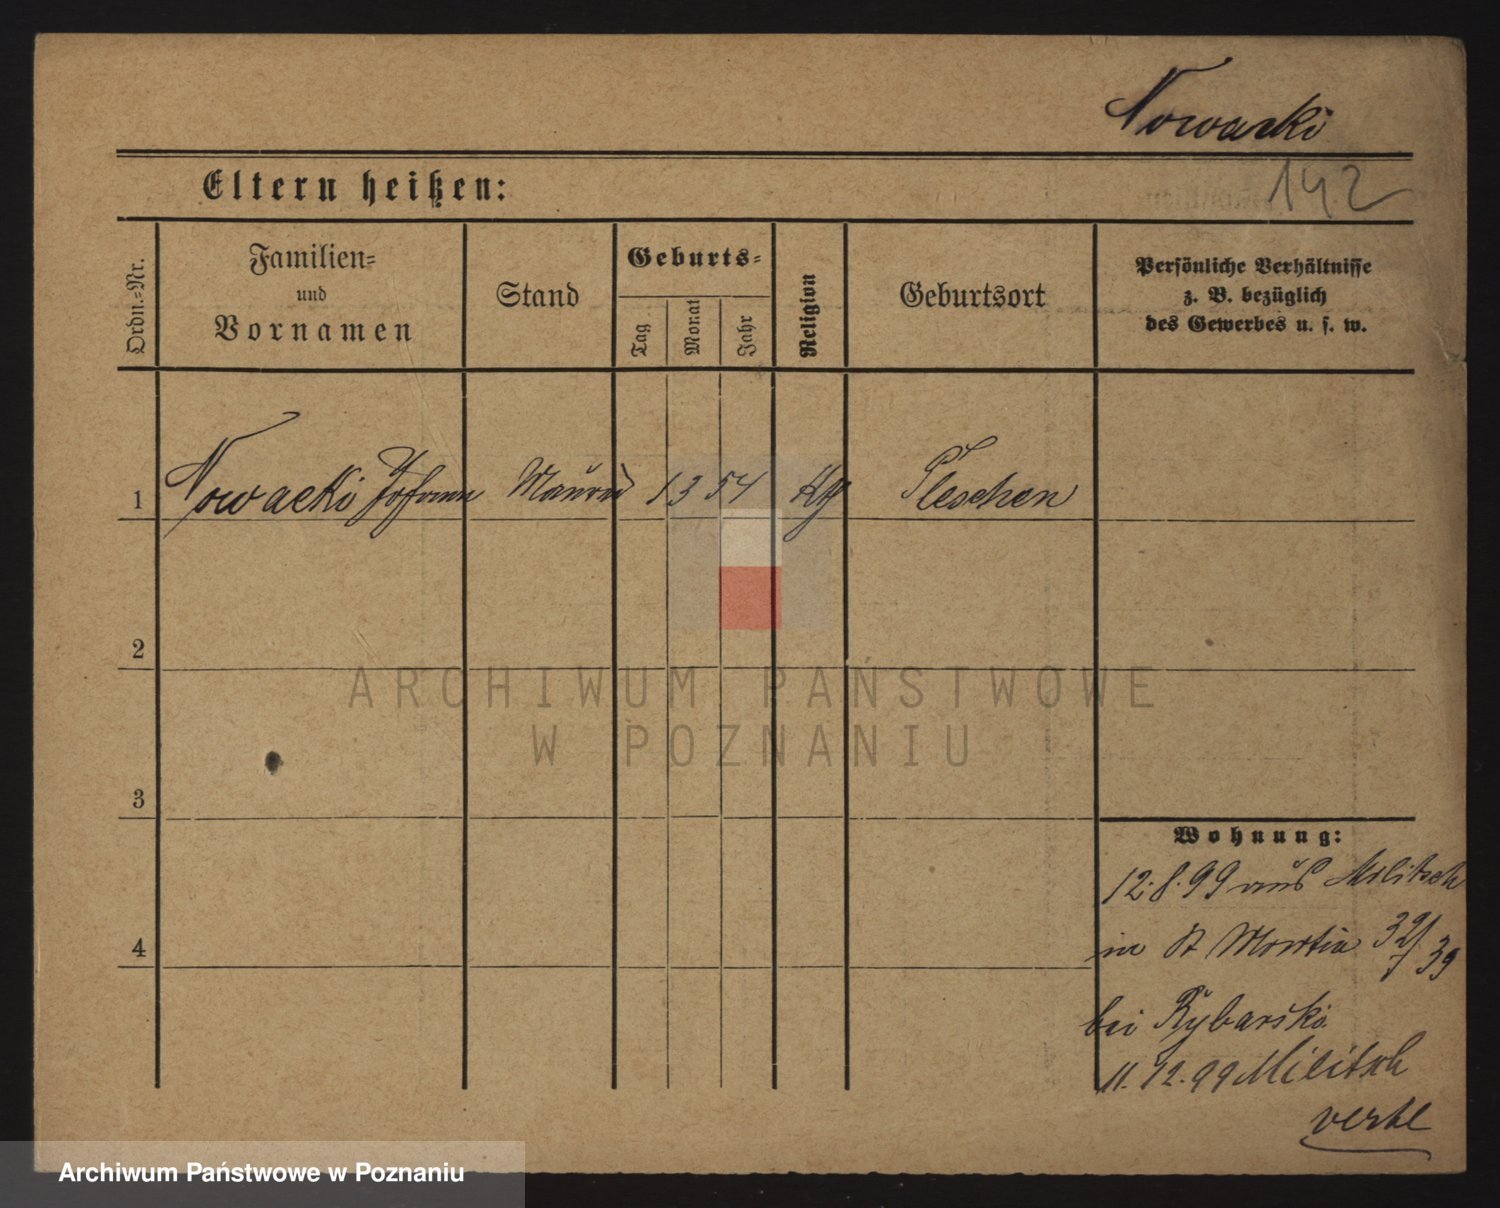 Nowacki
Eltern heißen:
142
Ordn.=Nr.
Familien=
und
Vornamen
Stand
Geburts=
Tag
Monat
Jahr
Religion
Geburtsort
Persönliche Verhältnisse
z. B. bezüglich
des Gewerbes u. s. w.
1 Nowacki Johann Maurer 13 54 Kth Pleschen
2
ARCHIWUM PAŃSTWOWE
W POZNANIU
3
Wohnung:
12.8.99 aus Militsch
in St Martin 39
4
bei Rybarski
11.12.99 Militsch
Archiwum Państwowe w Poznaniu